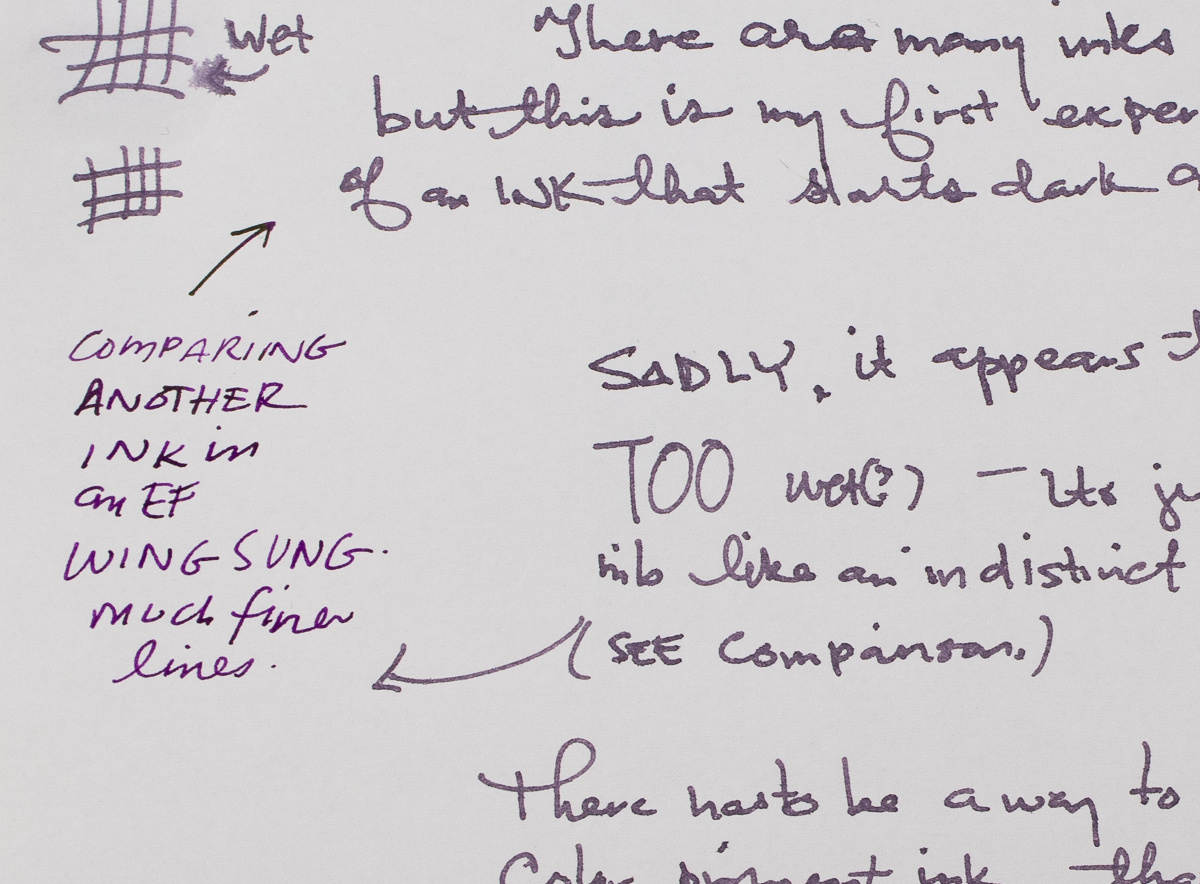 Wet
There are many inks
but this is my first exper
of an INK that starts dark a
COMPARIING
ANOTHER
INK in
an EF
WING SUNG.
much finer
lines.
SADLY, it appears
TOO wet(?) — Its ju
nib like an indistinct
(SEE Comparison.)
There has to be a way to
Color pigment ink tha